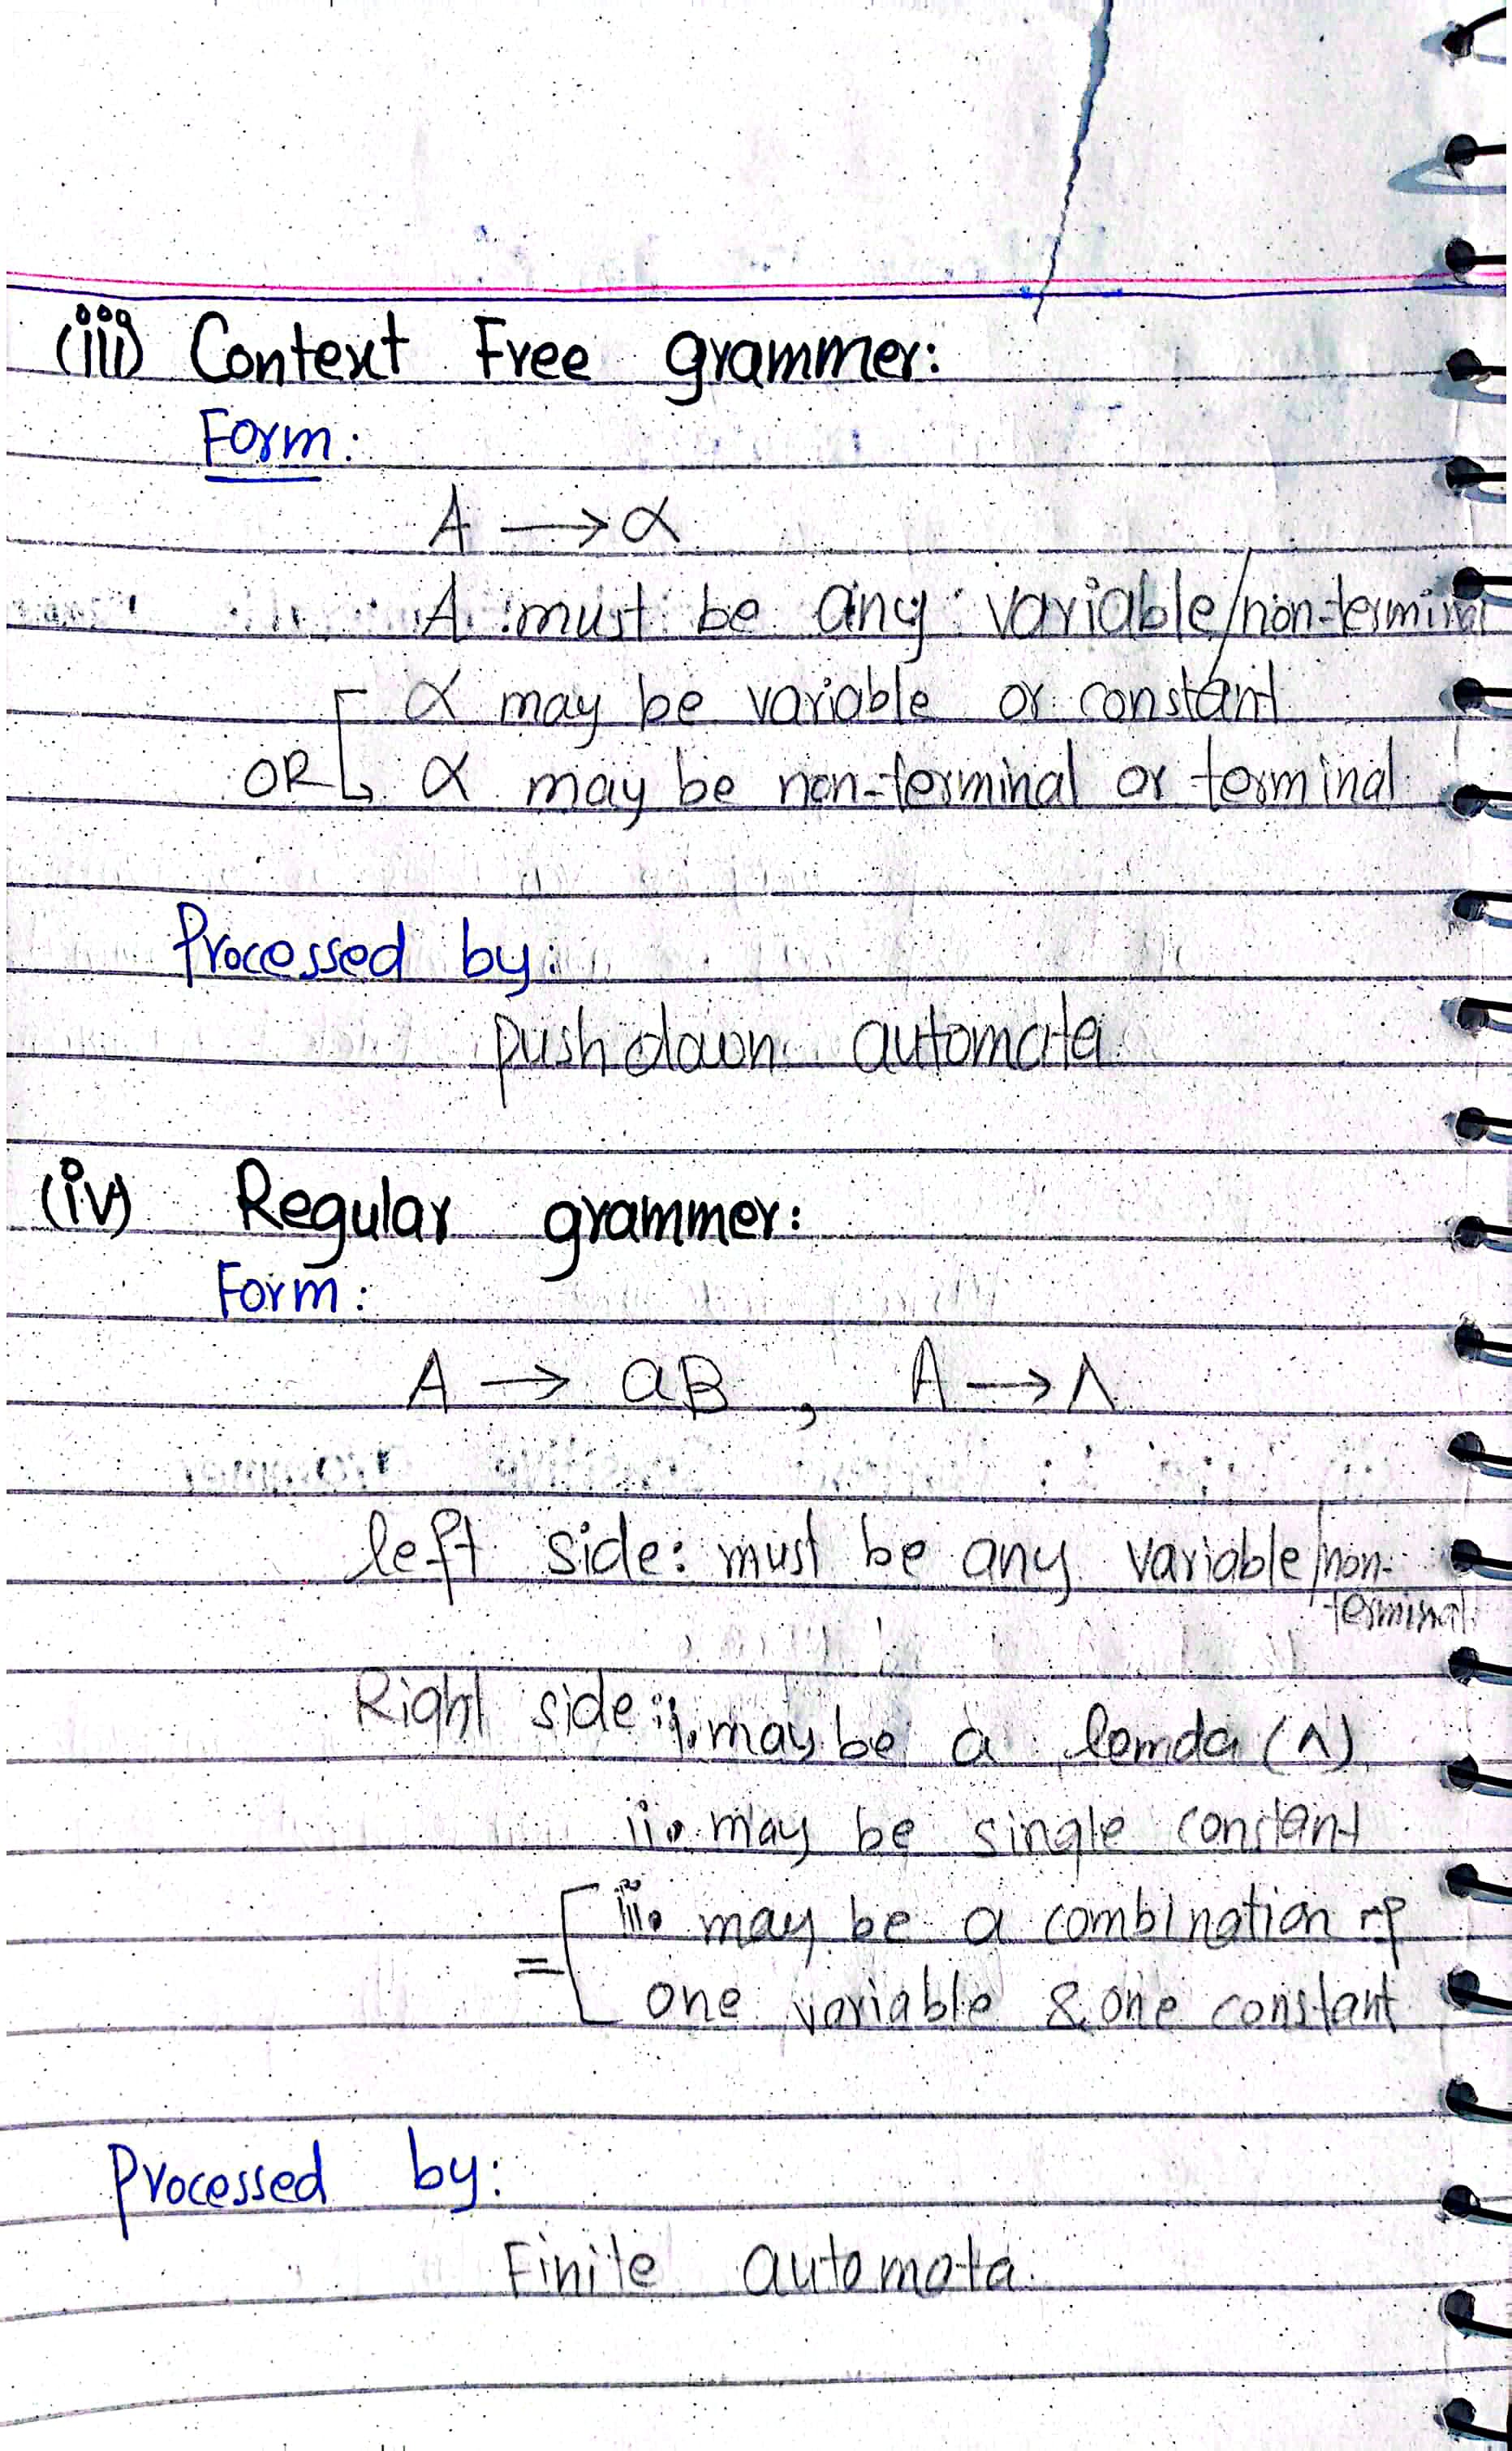 (iii) Context Free grammer:
Form:
A → α
A must be any variable/non-terminal
α may be variable or constant
OR α may be non-terminal or terminal
Processed by:
pushdown automata
(iv) Regular grammer:
Form:
A → aB , A → Λ
left side: must be any variable/non-
terminal
Right side: i. may be a lemda (Λ)
ii. may be single constant
iii. may be a combination of
= one variable & one constant
Processed by:
Finite automata